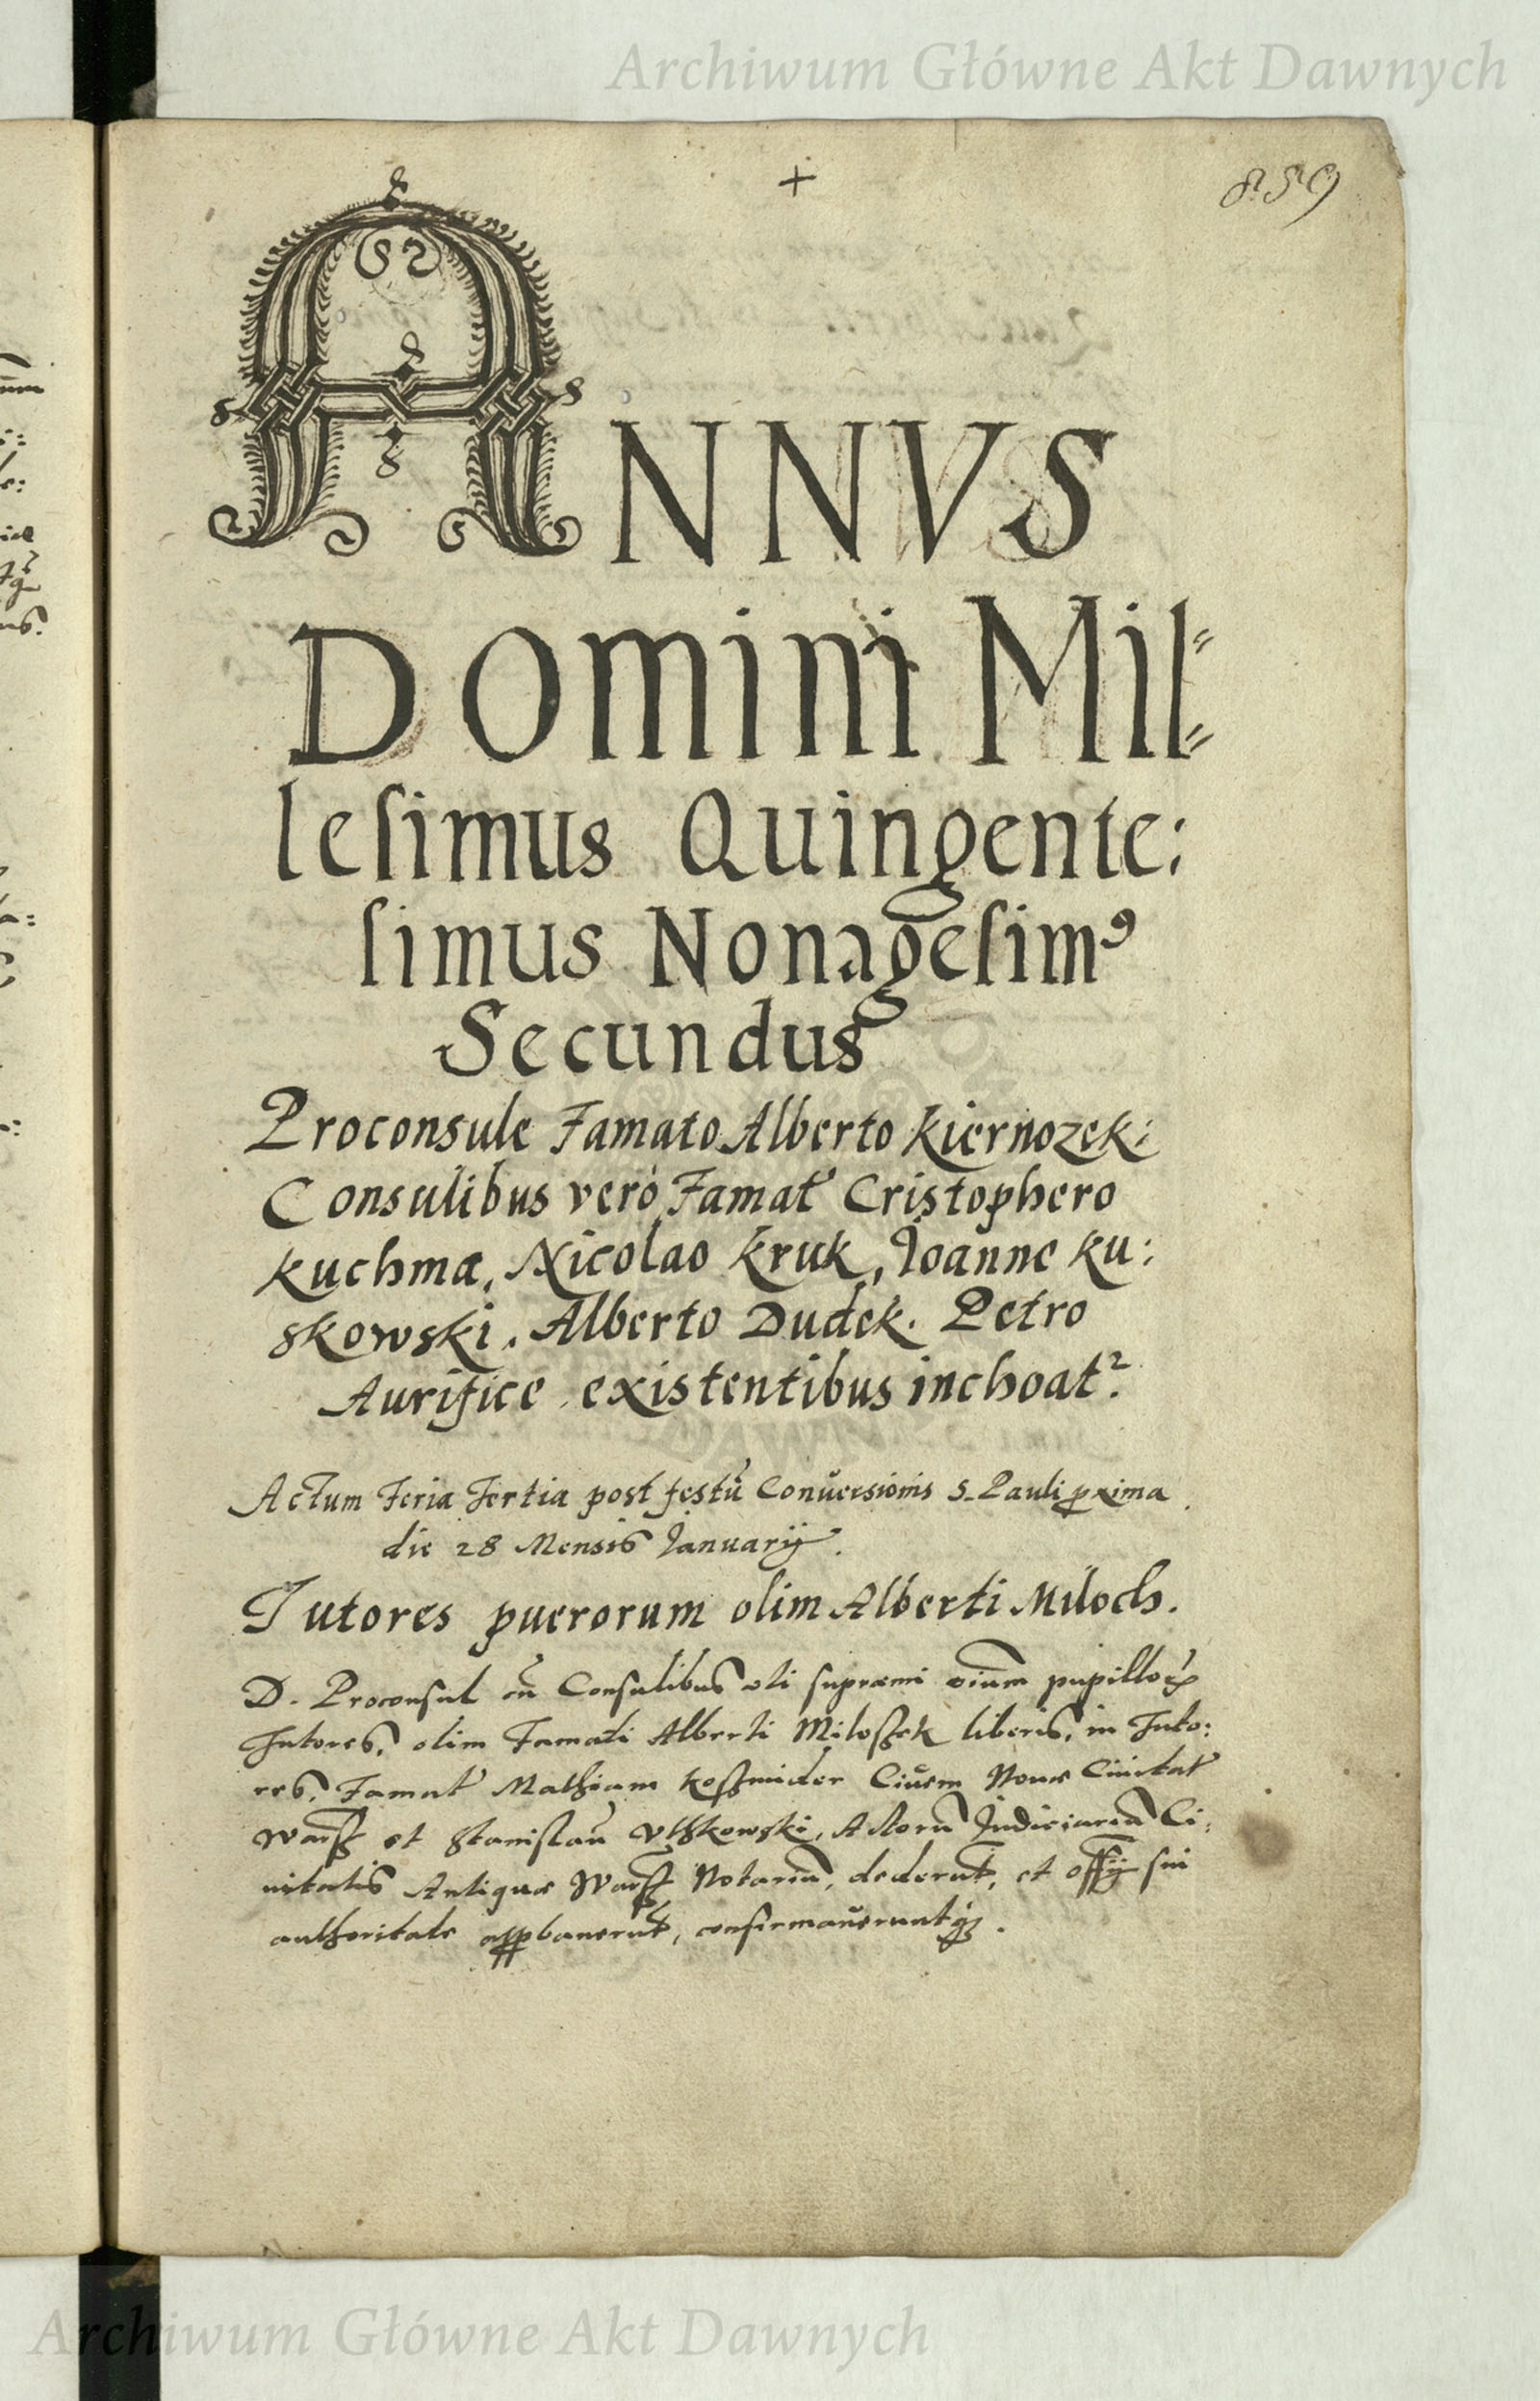 Archiwum Główne Akt Dawnych
+
859
ANNVS
Domini Mil=
lesimus Quingente:
simus Nonagesimꝰ
Secundus
Proconsule Famato Alberto Kiernozek:
Consulibus verò Famat Cristophero
Kuchma, Nicolao Kruk, Ioanne Ku:
skowski, Alberto Dudek. Petro
Aurifice existentibus inchoat.
Actum Feria Tertia post festū Conversionis S. Pauli pxima
die 28 Mensis Ianuarij.
Tutores puerorum olim Alberti Miloch.
D. Proconsul cū Consulibus uti supremi oium pupilloꝝ
Tutores, olim Famati Alberti Miloszek liberis, in Tuto:
res, Famat Mathiam Koszmider Ciuem Nouæ Ciuitat
Warsz et Stanislaū Vthkowski, Actorū Iudiciariū Ci:
uitatis Antiquæ Warsz Notariū, dederūt, et offij sui
authoritate appbauerūt, confirmaueruntqꝫ.
Archiwum Główne Akt Dawnych